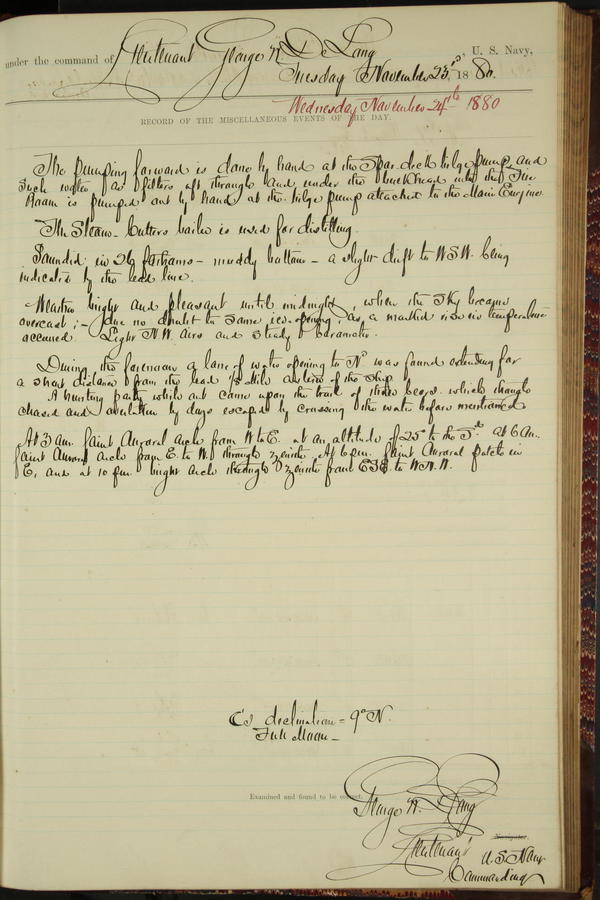 under the command of Lieutenant George W. De Long, U. S. Navy,
Tuesday November 23rd, 1880.
Wednesday November 24th 1880
RECORD OF THE MISCELLANEOUS EVENTS OF THE DAY.
The pumping forward is done by hand at the Spar deck bilge pump, and
Such water as filters aft through and under the bulkhead into the Fire
Room is pumped out by hand at the bilge pump attached to the Main Engine.
The Steam-Cutters boiler is used for distilling.
Sounded in 26 fathoms - muddy bottom - a slight drift to WSW. being
indicated by the lead line.
Weather bright and pleasant until midnight, when the sky became
overcast; - due no doubt to some ice-opening, as a marked rise in temperature
occurred. Light N.W. airs and steady barometer.
During the forenoon a lane of water opening to N was found extending for
a short distance from the lead ½ mile astern of the ship
A hunting party while out came upon the track of three bears. which though
chased and overtaken by dogs escaped by crossing the water before mentioned
At 3 am. faint Auroral arch from W to E. at an altitude of 25° to the Sd. At 6 am.
faint Auroral arch from E. to W. through zenith. At 6 pm. faint Auroral patch in
E, and at 10 pm. bright arch through zenith from ESE. to WNW.
C's declination = 9° N.
Full Moon -
Examined and found to be correct.
George W. De Long
Navigator.
Lieutenant U. S. Navy
Commanding